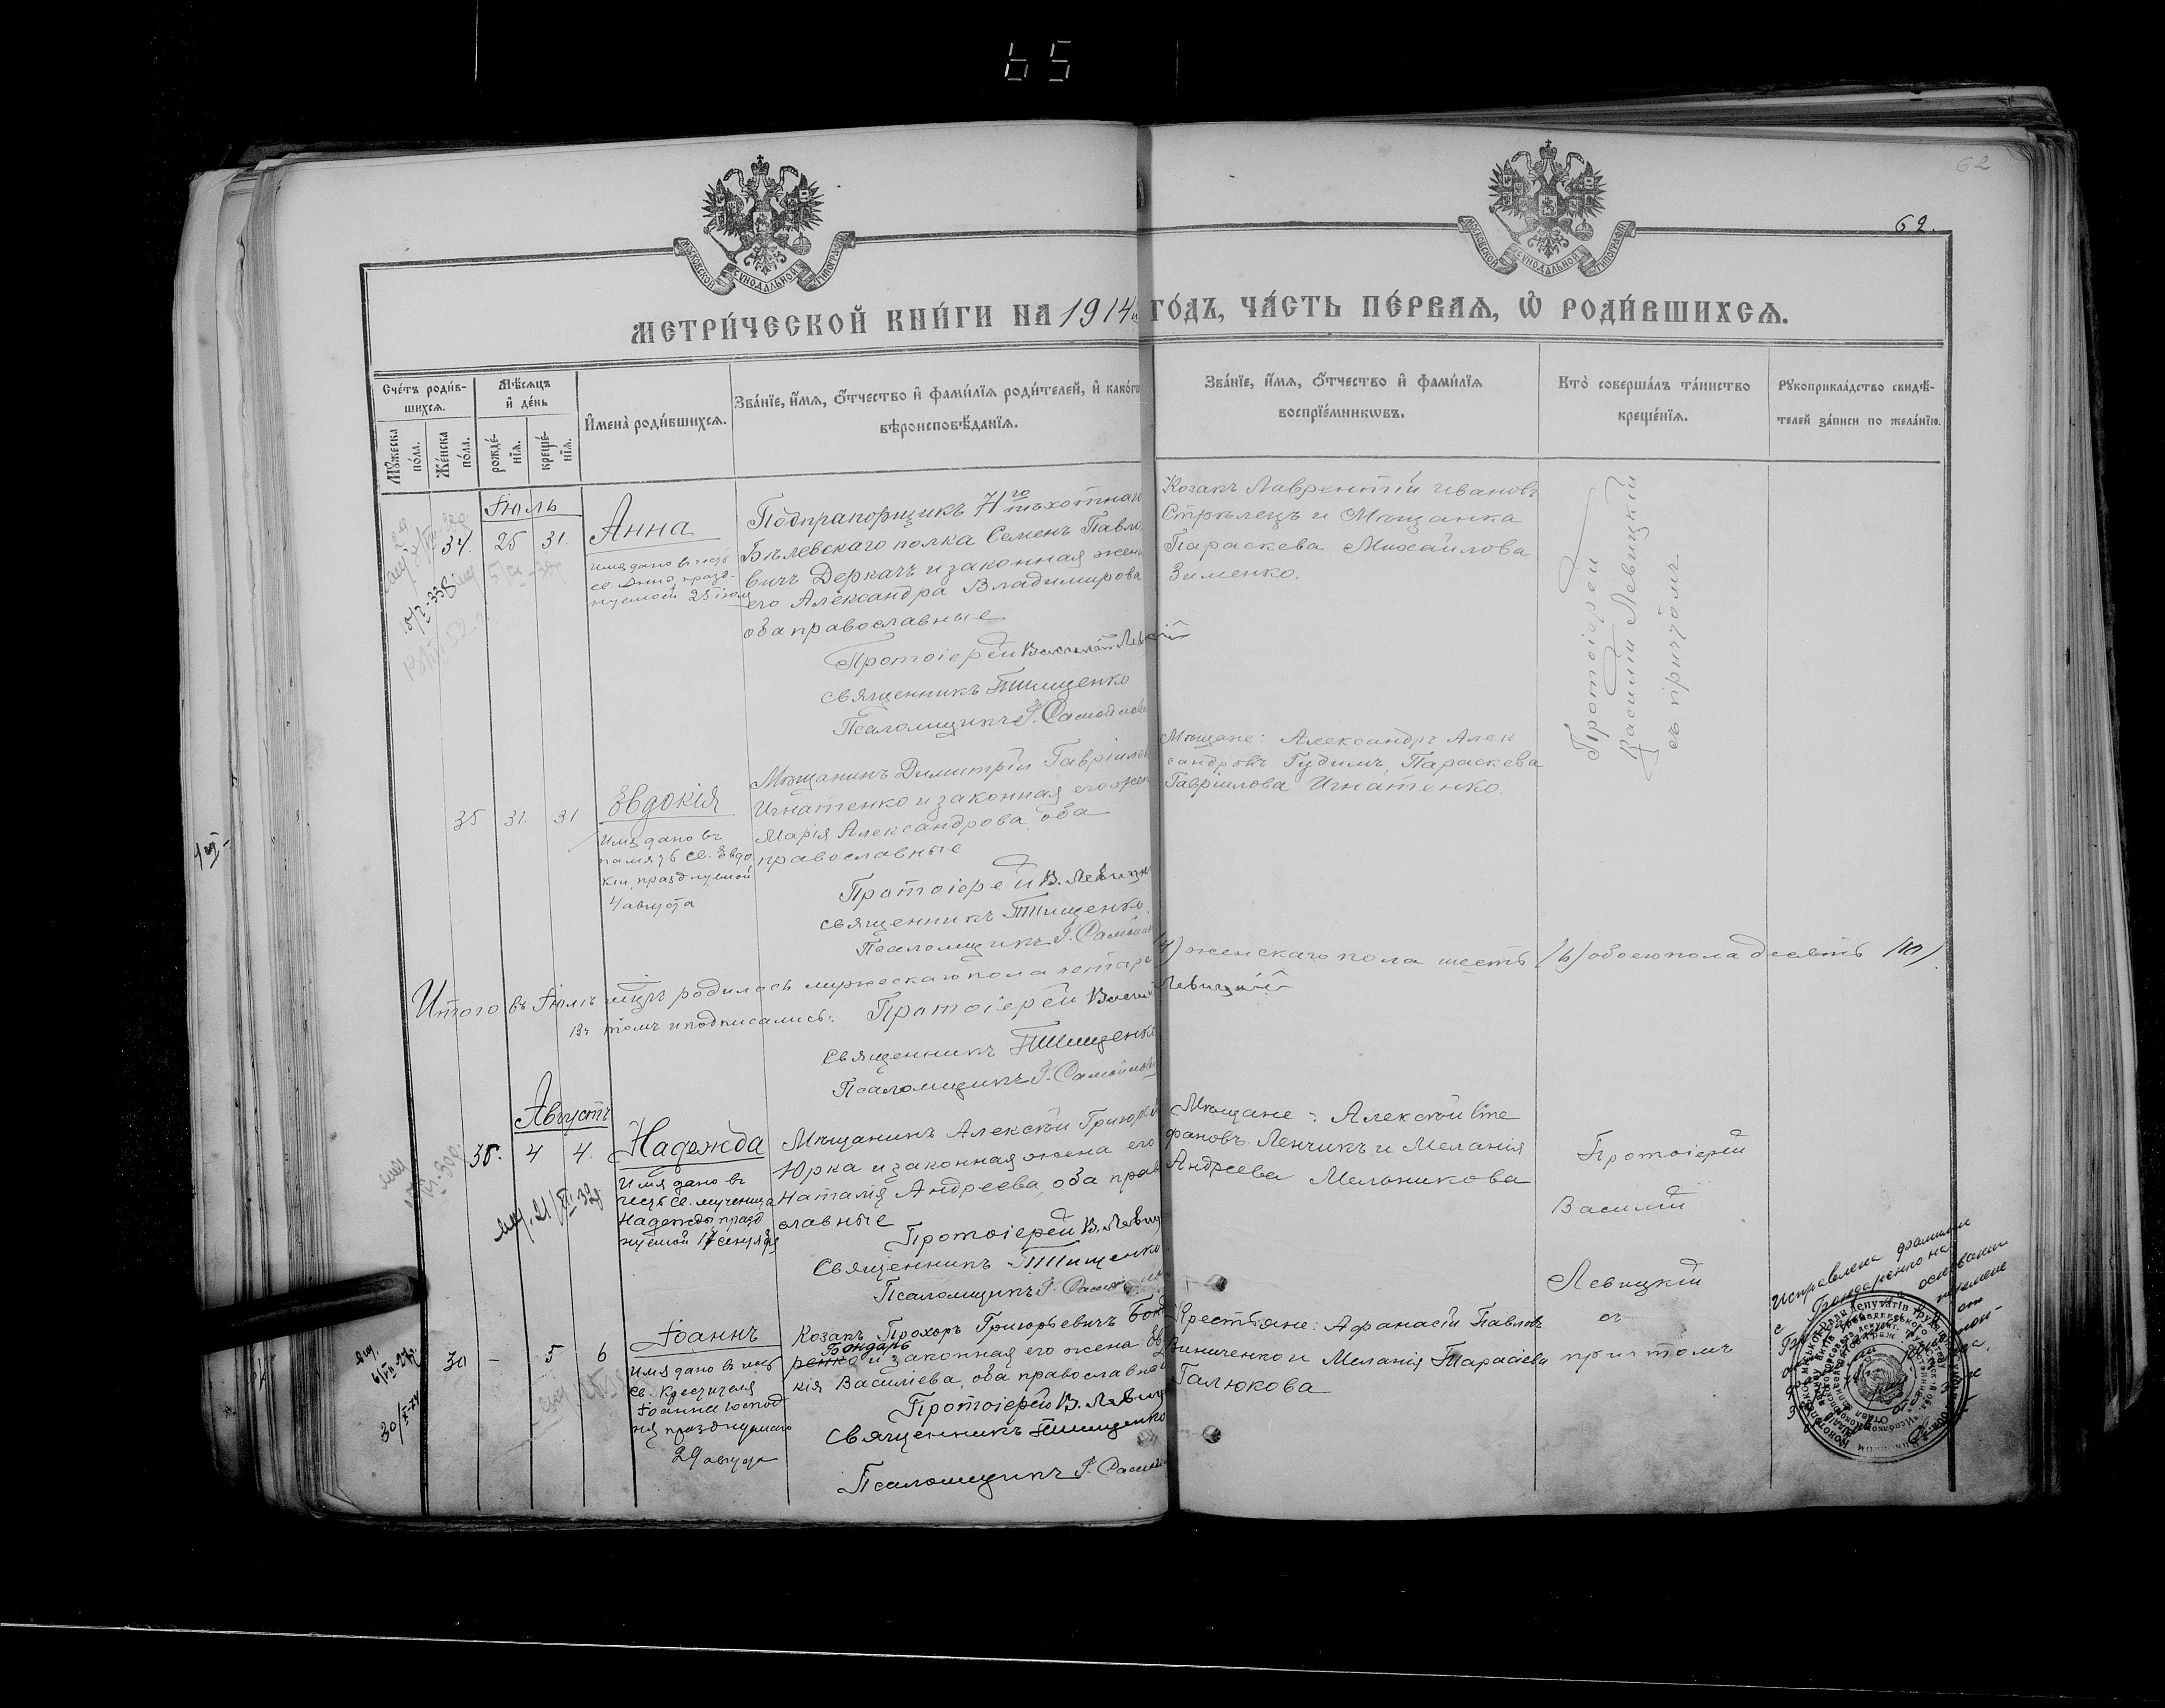 65
62
62.
МОСКОВСКОЙ СѴНОДАЛЬНОЙ ТИПОГРАФІИ
МОСКОВСКОЙ СѴНОДАЛЬНОЙ ТИПОГРАФІИ
МЕТРИ́ЧЕСКОЙ КНИ́ГИ НА 1914 ГО́ДЪ, ЧА́СТЬ ПЕ́РВАѦ, Ѡ РОДИ́ВШИХСѦ.
Сче́тъ роди́в-
шихсѧ.
Мꙋ́жеска
по́ла.
Же́нска
по́ла.
Мѣ́сѧцъ
и҆ де́нь
рожде́-
нїѧ.
креще́-
нїѧ.
И҆мена̀ роди́вшихсѧ.
Зва́нїе, и҆́мѧ, ѻ҆́тчество и҆ фами́лїѧ роди́телей, и҆ како́гѡ
вѣроисповѣ́данїѧ.
Зва́нїе, и҆́мѧ, ѻ҆́тчество и҆ фами́лїѧ
воспрїе́мникѡвъ.
Кто̀ соверша́лъ та́инство
креще́нїѧ.
Рꙋкоприкла́дство свидѣ́-
телей за́писи по жела́нїю.
Іюль
34. 25 31.
Анна
Имя дано въ честь
св. Анны, празд-
нуемой 25 іюля
Подпрапорщикъ 71го пѣхотнаго
Бѣлевскаго полка Семенъ Павло
вичъ Деркачъ и законная жена
его Александра Владимирова
оба православные
Протоіерей Василій Левицкій
Священникъ Тищенко
Псаломщикъ
Козакъ Лаврентій Ивановъ
Стрѣлецъ и Мѣщанка
Параскева Михайлова
Зименко.
Протоіерей
Василій Левицкій
съ причтомъ
35 31. 31
Евдокія
Имя дано въ
память св. Евдо
кіи, празднуемой
4 августа
Мѣщанинъ Димитрій Гавріилов
Игнатенко и законная его жена
Марія Александрова, оба
православные
Протоіерей В. Левицкій
Священникъ Тищенко
Псаломщикъ
Мѣщане: Александръ Алек
сандровъ Гудимъ, Параскева
Гавріилова Игнатенко.
Итого въ Іюлѣ мцѣ родилось мужескаго пола четыре (4) женскаго пола шесть (6) обоего пола десять (10).
Въ томъ и подписались: Протоіерей Василій Левицкій
Священникъ Тищенко
Псаломщикъ
Августъ
36. 4 4.
Надежда
Имя дано въ
честь св. мученицы
Надежды, празд
нуемой 17 сентября
Мѣщанинъ Алексѣй Григорьев
Юрка и законная жена его
Наталія Андреева, оба право
славные
Протоіерей В. Левиц
Священникъ Тищенко
Псаломщикъ
Мѣщане: Алексѣй Сте
фановъ Ленчикъ и Меланія
Андреева Мельникова
Протоіерей
Василий
Левицкій
съ
причтомъ
30 - 5 6
Іоаннъ
Имя дано въ честь
св. Крестителя
Іоанна Господ
ня празднуемаго
29 августа
Козакъ Прохоръ Григорьевичъ Бонда
Бондарь
ренко и законная его жена Ев
кія Василіева, оба православные
Протоіерей В. Левиц
Священникъ Тищенко
Псаломщикъ
Крестьяне: Афанасій Павловъ
Виниченко и Меланія Тарасіева
Галюкова
Исправлена фамилия
с Бондаренко на